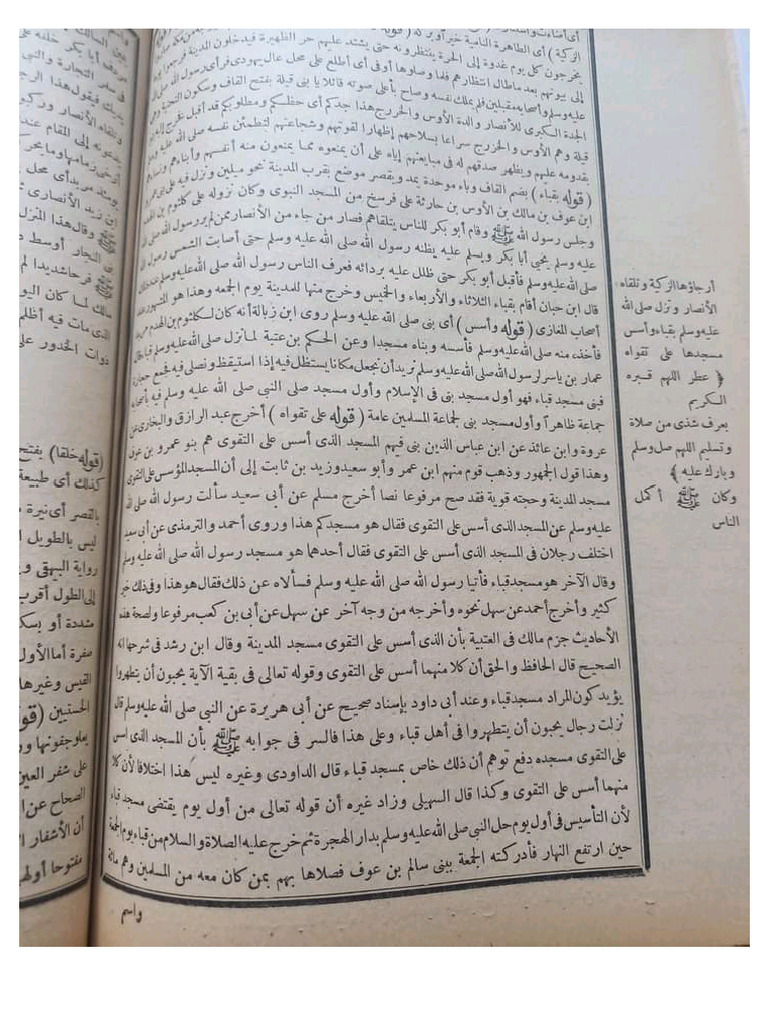 أى أضاءت وأشرقت
الزكية) أى الطاهرة النامية خيرا وبركة (قوله
يخرجون كل يوم غدوة إلى الحرة ينتظرونه حتى يشتد عليهم حر الظهيرة فيدخلون المدينة فرجعوا
إلى بيوتهم بعد ما طال انتظارهم فلما وصلوها أوفى أى أطلع على محل عال يهودى فرأى رسول الله صلى الله
عليه وسلم وأصحابه مقبلين فلم يملك نفسه وصاح بأعلى صوته قائلا يا بنى قيلة بفتح القاف وسكون التحتية وهى
الجدة الكبرى للأنصار والدة الأوس والخزرج هذا جدكم أى حظكم ومطلوبكم قد أقبل فخرج إليه بنو
قيلة وهم الأوس والخزرج سراعا بسلاحهم إظهارا لقوتهم وشجاعتهم لتطمئن نفسه صلى الله عليه وسلم
بقدومه عليهم ويظهر صدقهم له فى مبايعتهم إياه على أن يمنعوه مما يمنعون منه أنفسهم وأبناءهم ونساءهم
(قوله بقباء) بضم القاف وباء موحدة يمد ويقصر موضع بقرب المدينة نحو ميلين ونزل فيه على بنى عمرو
ابن عوف بن مالك بن الأوس بن حارثة على فرسخ من المسجد النبوى وكان نزوله على كلثوم بن الهدم
وجلس رسول الله ﷺ وقام أبو بكر للناس يتلقاهم فصار من جاء من الأنصار ممن لم ير رسول الله صلى الله
عليه وسلم يحيى أبا بكر ويسلم عليه يظنه رسول الله صلى الله عليه وسلم حتى أصابت الشمس رسول الله
صلى الله عليه وسلم فأقبل أبو بكر حتى ظلل عليه بردائه فعرف الناس رسول الله صلى الله عليه وسلم عند ذلك
قال ابن حبان أقام بقباء الثلاثاء والأربعاء والخميس وخرج منها للمدينة يوم الجمعه وهذا هو المشهور عند
أصحاب المغازى (قوله وأسس) أى بنى صلى الله عليه وسلم روى ابن زبالة أنه كان لكلثوم بن الهدم مربد
فأخذه منه صلى الله عليه وسلم فأسسه وبناه مسجدا وعن الحكم بن عتبة لما نزل صلى الله عليه وسلم قباء قال
عمار بن ياسر لرسول الله صلى الله عليه وسلم نريد أن نجعل مكانا يستظل فيه إذا استيقظ ونصلى فيه فجمع حجارة
فبنى مسجد قباء فهو أول مسجد بنى فى الإسلام وأول مسجد صلى النبى صلى الله عليه وسلم فيه بأصحابه
جماعة ظاهرا وأول مسجد بنى لجماعة المسلمين عامة (قوله على تقواه) أخرج عبد الرازق والبخارى عن
عروة وابن عائذ عن ابن عباس الذين بنى فيهم المسجد الذى أسس على التقوى هم بنو عمرو بن عوف
وهذا قول الجمهور وذهب قوم منهم ابن عمر وأبو سعيد وزيد بن ثابت إلى أن المسجد المؤسس على التقوى
مسجد المدينة وحجته قوية فقد صح مرفوعا نصا أخرج مسلم عن أبى سعيد سألت رسول الله صلى الله
عليه وسلم عن المسجد الذى أسس على التقوى فقال هو مسجدكم هذا وروى أحمد والترمذى عن أبى سعيد
اختلف رجلان فى المسجد الذى أسس على التقوى فقال أحدهما هو مسجد رسول الله صلى الله عليه وسلم
وقال الآخر هو مسجد قباء فأتيا رسول الله صلى الله عليه وسلم فسألاه عن ذلك فقال هو هذا وفى ذلك خير
كثير وأخرج أحمد عن سهل نحوه وأخرجه من وجه آخر عن سهل عن أبى بن كعب مرفوعا ولصحة هذه
الأحاديث جزم مالك فى العتبية بأن الذى أسس على التقوى مسجد المدينة وقال ابن رشد فى شرحها انه
الصحيح قال الحافظ والحق أن كلا منهما أسس على التقوى وقوله تعالى فى بقية الآية يحبون أن يتطهروا
يؤيد كون المراد مسجد قباء وعند أبى داود بإسناد صحيح عن أبى هريرة عن النبى صلى الله عليه وسلم قال
نزلت رجال يحبون أن يتطهروا فى أهل قباء وعلى هذا فالسر فى جوابه ﷺ بأن المسجد الذى اسس
على التقوى مسجده دفع توهم أن ذلك خاص بمسجد قباء قال الداودى وغيره ليس هذا اختلافا لأن كلا
منهما أسس على التقوى وكذا قال السهيلى وزاد غيره أن قوله تعالى من أول يوم يقتضى مسجد قباء
لأن التأسيس فى أول يوم حل النبى صلى الله عليه وسلم بدار الهجرة ثم خرج عليه الصلاة والسلام من قباء يوم الجمعة
حين ارتفع النهار فأدركته الجمعة ببنى سالم بن عوف فصلاها بهم بمن كان معه من المسلمين وهم مائة
واسم
أرجاؤها الزكية وتلقاه
الأنصار ونزل صلى الله
عليه وسلم بقباء وأسس
مسجدها على تقواه
﴿ عطر اللهم قبره
الكريم
بعرف شذى من صلاة
وتسليم اللهم صل وسلم
وبارك عليه ﴾
وكان ﷺ أكمل
الناس
(قوله خلقا) بفتح
كذلك أى طبيعة
بالقصر أى نيرة
ليس بالطويل
رواية البيهقى
إلى الطول أقرب
مشددة أو بسكون
صفرة أما الأول
القيس وغيرها
الحسنيين (قوله
يعلو جفونها
على شفر العين
الصحاح عن
أن الأشفار
مفتوحا أولها